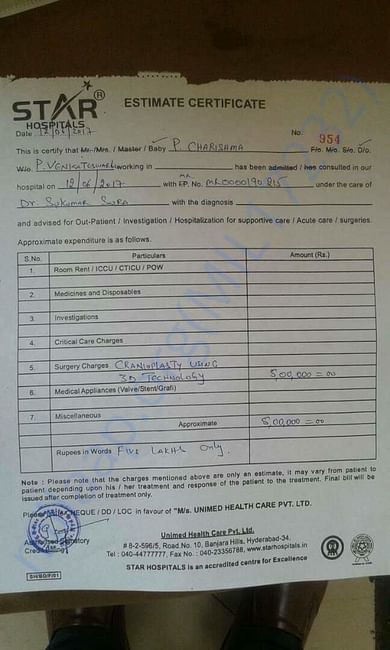 STAR®
HOSPITALS
ESTIMATE CERTIFICATE
Date 12/06/2017
No. 954
This is certify that Mr./Mrs. / Master / Baby P. CHARISHMA F/o. M/o. S/o. D/o.
W/o. P. VENKATESWARLU working in has been admitted / has consulted in our
hospital on 12/06/2017 with I.P. No. MR0000190815 under the care of
Dr. Sukumar Sura with the diagnosis
and advised for Out-Patient / Investigation / Hospitalization for supportive care / Acute care / surgeries.
Approximate expenditure is as follows.
S.No. Particulars Amount (Rs.)
1. Room Rent / ICCU / CTICU / POW
2. Medicines and Disposables
3. Investigations
4. Critical Care Charges
5. Surgery Charges CRANIOPLASTY USING
3D TECHNOLOGY 5,00,000=00
6. Medical Appliances (Valve/Stent/Graft)
7. Miscellaneous
Approximate 5,00,000=00
Rupees in Words FIVE LAKHS Only.
Note : Please note that the charges mentioned above are only an estimate, it may vary from patient to
patient depending upon his / her treatment and response of the patient to the treatment. Final bill will be
issued after completion of treatment only.
Please CHEQUE / DD / LOC in favour of "M/s. UNIMED HEALTH CARE PVT. LTD.
Authorised Signatory
Unimed Health Care Pvt. Ltd.
# 8-2-596/5, Road No. 10, Banjara Hills, Hyderabad-34.
Tel : 040-44777777, Fax No. : 040-23356788, www.starhospitals.in
STAR HOSPITALS is an accredited centre for Excellence
SH/BG/F/01